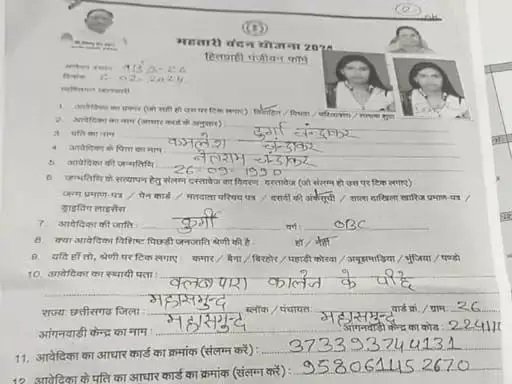 महतारी वंदन योजना 2024
हितग्राही पंजीयन फॉर्म
दिनांक 02-2024
व्यक्तिगत जानकारी
1. आवेदिका का प्रकार (जो सही हो उस पर टिक लगाए) विवाहित / विधवा / परित्यक्ता /
2. आवेदिका का नाम (आधार कार्ड के अनुसार) दुर्गा चंद्राकर
3. पति का नाम कमलेश चंद्राकर
4. आवेदिका के पिता का नाम नेतराम चंद्राकर
5. आवेदिका की जन्मतिथि 26-09-1990
6. जन्मतिथि के सत्यापन हेतु संलग्न दस्तावेज का विवरण दस्तावेज (जो संलग्न हो उस पर टिक लगाए)
जन्म प्रमाण-पत्र / पेन कार्ड / मतदाता परिचय पत्र / दसवीं की अंकसूची / शाला दाखिला खारिज प्रमाण-पत्र /
ड्राइविंग लाइसेंस
7. आवेदिका की जाति : कुर्मी वर्ग : OBC
8. क्या आवेदिका विशिष्ट पिछड़ी जनजाति श्रेणी की है हां / नहीं
9. यदि हाँ तो, श्रेणी पर टिक लगाएं कमार / बैगा / बिरहोर / पहाड़ी कोरवा / अबूझमाड़िया / भुंजिया / पण्डो
10. आवेदिका का स्थायी पता : क्लबपारा कालेज के पीछे
महासमुन्द
राज्य छत्तीसगढ़ जिला : महासमुन्द ब्लॉक / पंचायत महासमुन्द वार्ड क्रं / ग्राम 26
आंगनवाड़ी केन्द्र का नाम : आंगनवाड़ी केन्द्र का कोड :
11. आवेदिका का आधार कार्ड का क्रमांक (संलग्न करें) : 373393744131
12. आवेदिका के पति का आधार कार्ड का क्रमांक (संलग्न करें) : 958061452670